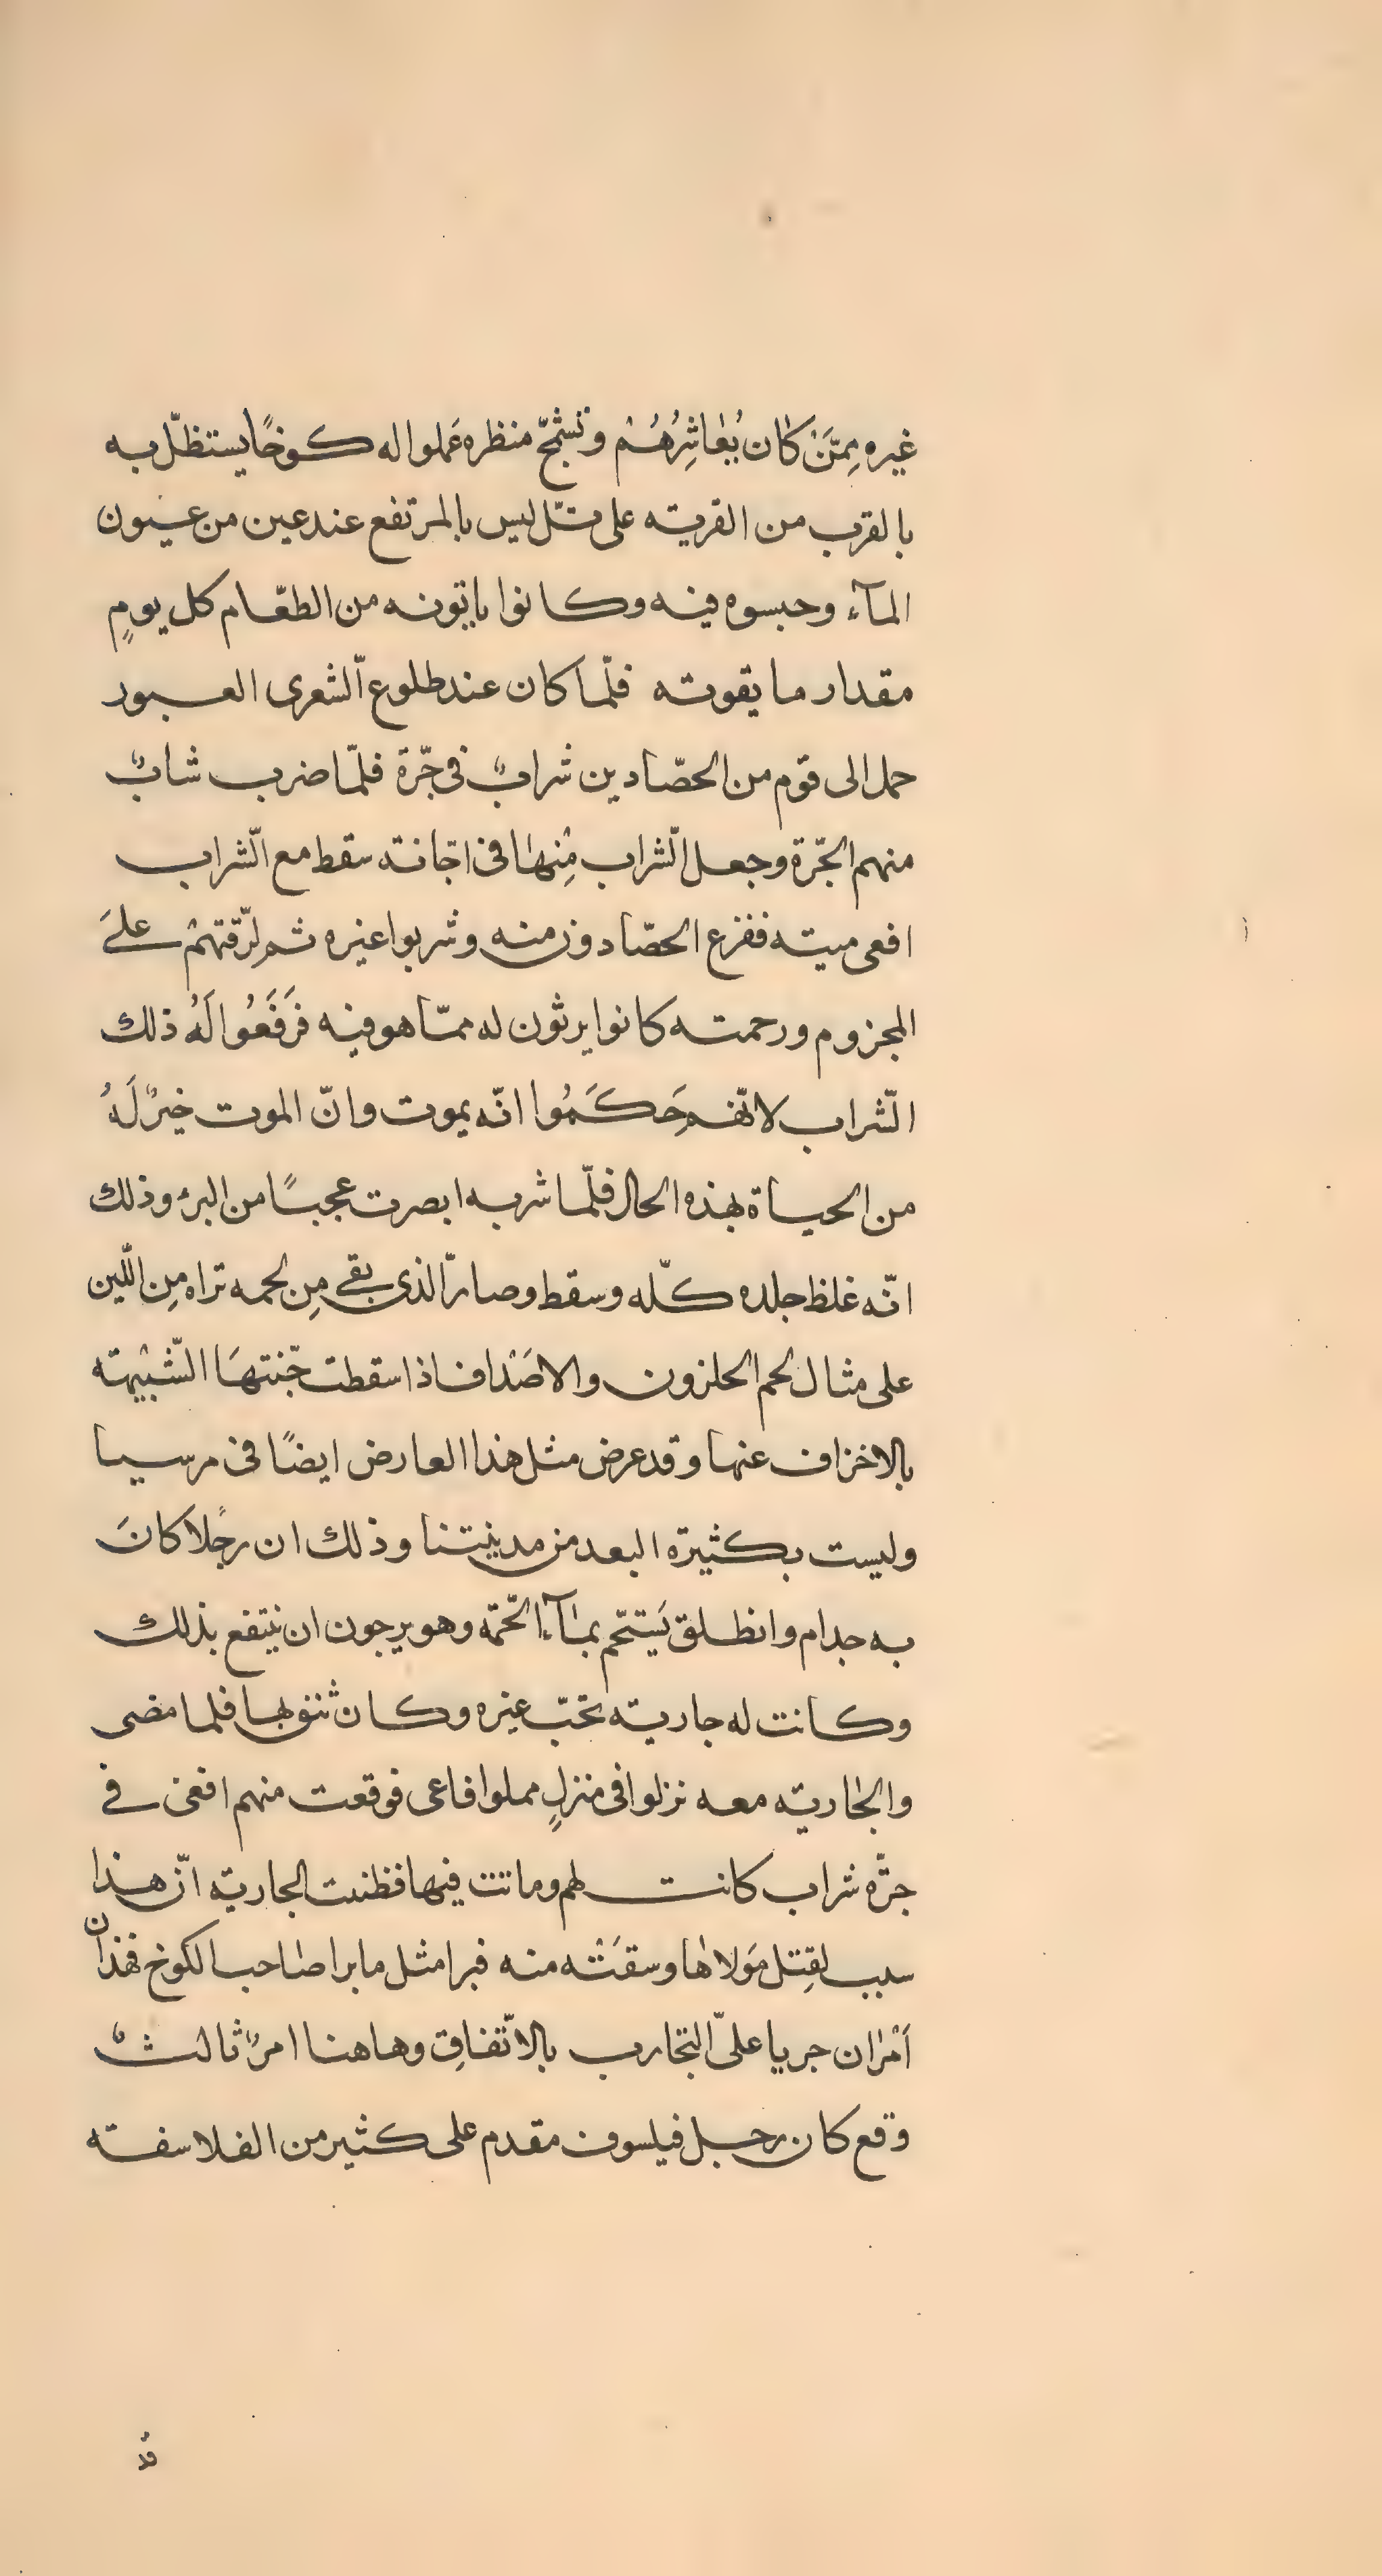 غيره مِمَّن كان يُعاشِرُهُمْ وتشمّج منظره عَملوا له كوخًا يستظلّ به
بالقرب من القريته على تلّ ليس بالمرتفع عند عين من عيون
المآء وحبسوه فيه وكانوا ياتونه من الطعّام كل يومٍ
مقدار ما يقوته فلّما كان عند طلوع الّشعرى العبور
حمل الى قوم من الحصّادين شرابٌ فى جّرة فلمّا ضرب شابٌ
منهم الجّرة وجعل الّشراب مِنها فى اجّانته سقط مع الّشراب
افعى ميته ففزع الحصّادون منه وشربوا غيره ثم لرّقتهمْ علىَ
المجزوم ورحمته كانوا يرثون له ممّا هو فيه فرَفَعُوا لَهُ ذلك
الّشراب لانّهم حَكَمُوا انّه يموت وانّ الموت خيرٌ لَهُ
من الحياة بهذه الحال فلّما شربه ابصرت عجبًا من البرء وذلك
انّه غلظ جلده كلّه وسقط وصار الّذى بقى مِن لحمه تراه مِن الّلين
على مثال لحم الحلزون والاصَدْاف اذا سقطت جّنتهَا الّشَبيْهته
بالاخزاف عنها وقد عرض مثل هذا العارض ايضًا فى مرسيا
وليست بكثيرة البعد من مدينتنا وذلك ان رجًلا كانَ
به جدام وانطلق يَستحّم بمآء الحّمّة وهو يرجون ان ينتفع بذلك
وكانت له جاريته تحبّ غيره وكان يثق بها فلما مضى
والجاريته معه نزلوا فى منزلٍ مملوا فاعى فوقعت منهم افعى فى
جرّه شراب كانت لهم وماتت فيها فظنت الجاريته انّ هذا
سبب لقِتل مَولاها وسقَتْه منه فبرا مثل ما برا صاحب الكوخ فهذان
اَمْران جريا علىّ التجارب بالاّتفاقِ وهاهنا امرٌ ثالثٌ
وقع كان رجل فيلسوف مقدم على كثير من الفلاسفته
قد